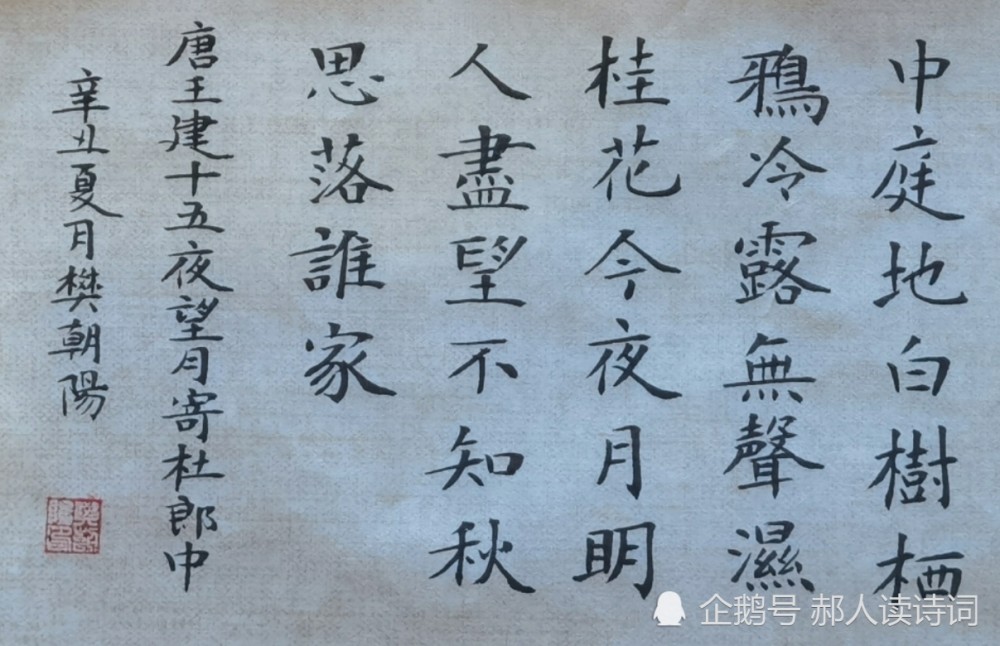 中庭地白樹栖
鴉冷露無聲濕
桂花今夜月明
人盡望不知秋
思落誰家
唐王建十五夜望月寄杜郎中
辛丑夏月樊朝陽
企鹅号 郝人读诗词